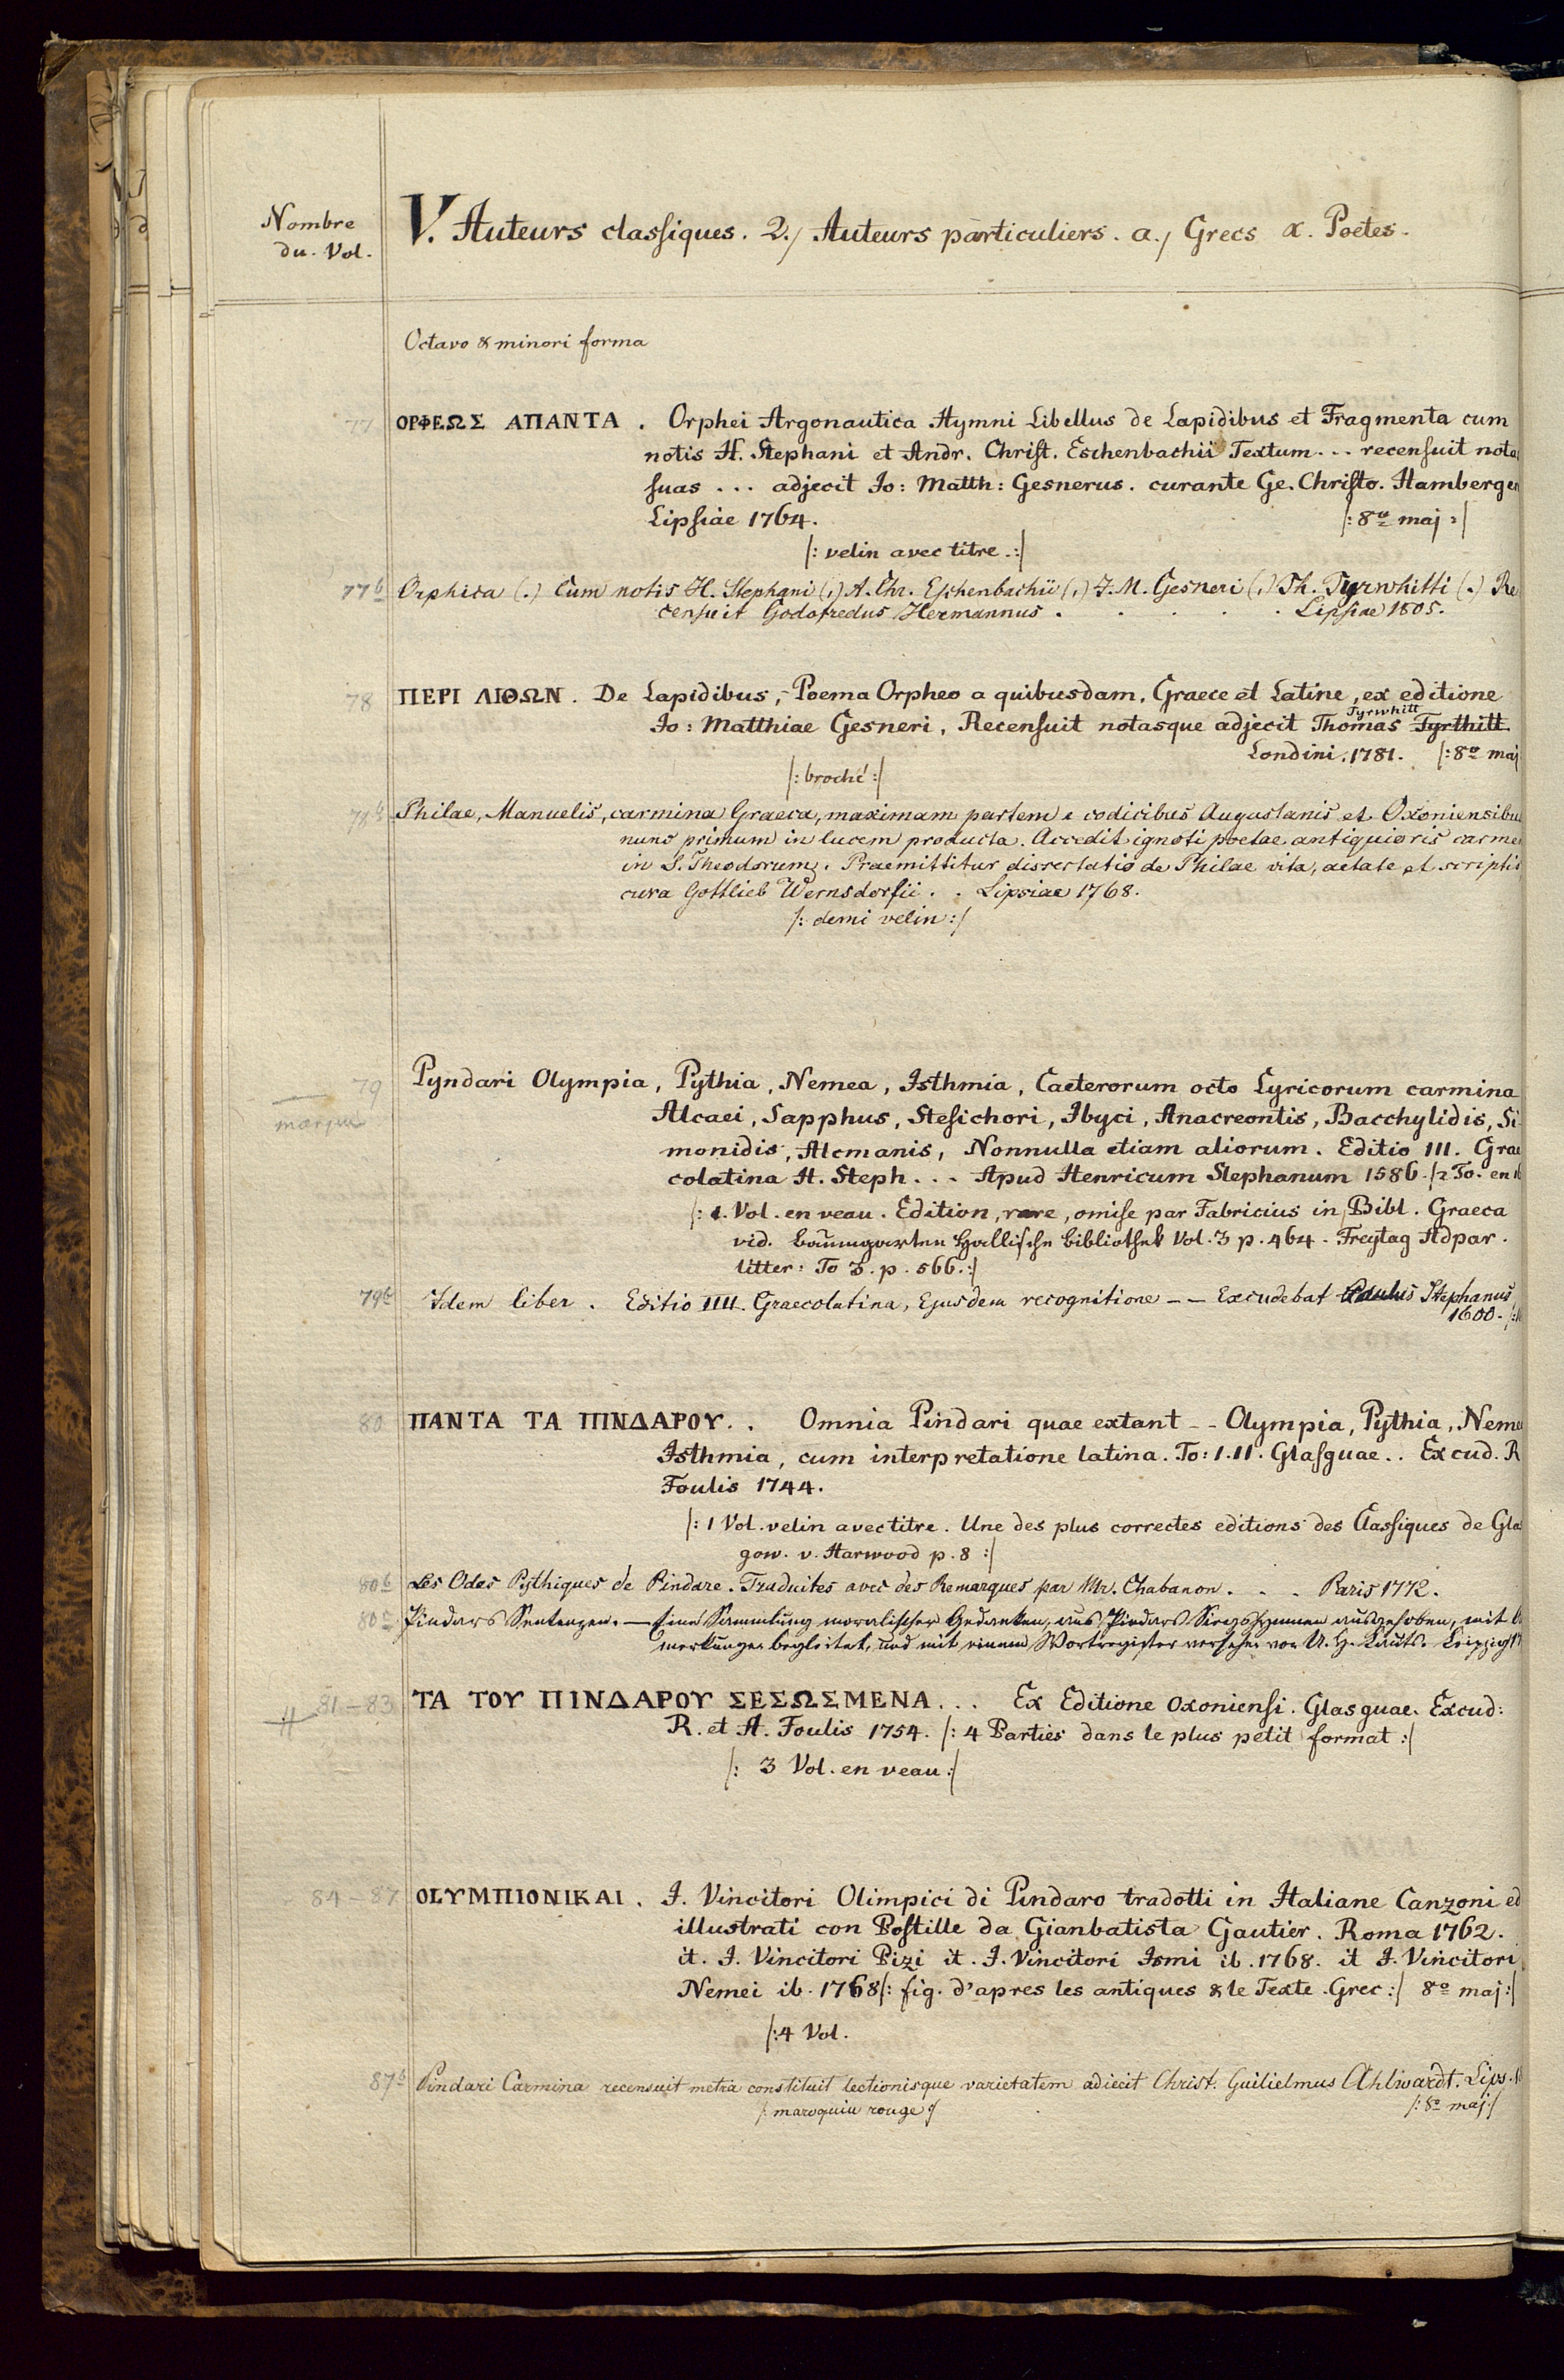 Nombre
du. Vol.
V. Auteurs classiques. 2./ Auteurs particuliers. a./ Grecs α. Poetes.
Octavo & minori forma
77 ΟΡΦΕΩΣ ΑΠΑΝΤΑ. Orphei Argonautica Hymni Libellus de Lapidibus et Fragmenta cum
notis H. Stephani et Andr. Christ. Eschenbachii Textum... recensuit nota
suas ... adjecit Jo: Matth: Gesnerus. curante Ge. Christo. Hamberger
Lipsiae 1764. |: 8º maj :|
|: velin avec titre.:|
77b Orphica (.) Cum notis H. Stephani (,) A. Chr. Eschenbachii (,) J. M. Gesneri (,) Th. Tyrwhitti (.) Re
censuit Godofredus Hermannus . . . . . Lipsiae 1805.
78 ΠΕΡΙ ΛΙΘΩΝ. De Lapidibus, Poema Orpheo a quibusdam, Graece et Latine, ex editione
Jo: Matthiae Gesneri, Recensuit notasque adjecit Thomas Tyrwhitt Tyrthitt
Londini. 1781. |: 8º maj
|: broché :|
78b Philae, Manuelis, carmina Graeca, maximam partem e codicibus Augustanis et Oxoniensibu
nunc primum in lucem producta. Accedit ignoti poetae antiquioris carme
in S. Theodorum. Praemittitur dissertatio de Philae vita, aetate et scriptis
cura Gottlieb Wernsdorfii . . Lipsiae 1768.
|: demi velin :|
79 Pyndari Olympia, Pythia, Nemea, Isthmia, Caeterorum octo Lyricorum carmina
manque
Alcaei, Sapphus, Stesichori, Ibyci, Anacreontis, Bacchylidis, Si
monidis, Alcmanis, Nonnulla etiam aliorum. Editio III. Grae
colatina H. Steph... Apud Henricum Stephanum 1586. |: 2 To. en 1
|: 1. Vol. en veau. Edition, rare, omise par Fabricius in Bibl. Graeca
vid. Baumgarten Hallische Bibliothek Vol. 3 p. 464. Freytag Adpar.
litter: To 3. p. 566.:|
79b Idem liber. Editio IIII. Graecolatina, Ejusdem recognitione -- Excudebat Paulus Stephanus
1600.
80 ΠΑΝΤΑ ΤΑ ΠΙΝΔΑΡΟΥ.. Omnia Pindari quae extant -- Olympia, Pythia, Neme
Isthmia, cum interpretatione latina. To: I. II. Glasguae.. Excud. R
Foulis 1744.
|: 1 Vol. velin avec titre. Une des plus correctes editions des Classiques de Glas
gow. v. Harwood p. 8 :|
80b Les Odes Pythiques de Pindare. Traduites avec des Remarques par Mr. Chabanon . . . Paris 1772.
80c Pindars Sentenzen. — Eine Sammlung moralischer Gedanken, aus Pindars Siegshymnen ausgehoben, mit
merkungen begleitet, und mit einem Wortregister versehen von U. H. Lauts. Leipzig
81-83 ΤΑ ΤΟΥ ΠΙΝΔΑΡΟΥ ΣΕΣΩΣΜΕΝΑ... Ex Editione Oxoniensi. Glasguae. Excud:
R. et A. Foulis 1754. |: 4 Parties dans le plus petit format :|
|: 3 Vol. en veau :|
84-87 ΟLΥΜΠΙΟΝΙΚΑΙ. I. Vincitori Olimpici di Pindaro tradotti in Italiane Canzoni ed
illustrati con Postille da Gianbatista Gautier. Roma 1762.
it. I. Vincitori Pizi it. I. Vincitori Ismi ib. 1768. it I. Vincitori
Nemei ib. 1768 |: fig. d'apres les antiques & le Texte Grec :| 8º maj :|
|: 4 Vol.
87b Pindari Carmina recensuit metra constituit lectionisque varietatem adiecit Christ. Guilielmus Ahlwardt. Lips.
|: maroquin rouge :| |: 8º maj :|